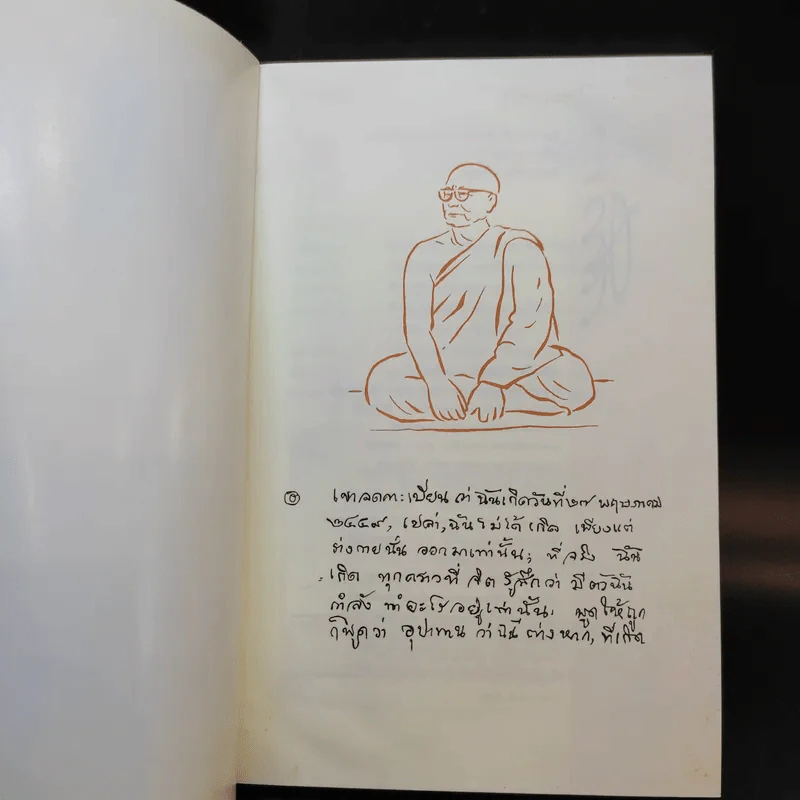 ๑ เขาจดทะเบียน ว่า ฉันเกิดวันที่ ๒๗ พฤษภาคม
๒๔๔๙, เปล่า, ฉันไม่ได้เกิด เพียงแต่
ร่างกายนั้น ออกมาเท่านั้น; ที่จริง ฉัน
เกิด ทุกคราวที่ จิต รู้สึกว่า มีตัวฉัน
กำลัง ทำอะไรอยู่เท่านั้น. พูดให้ถูก
ก็พูดว่า อุปาทาน ว่าฉัน ต่างหาก, ที่เกิด